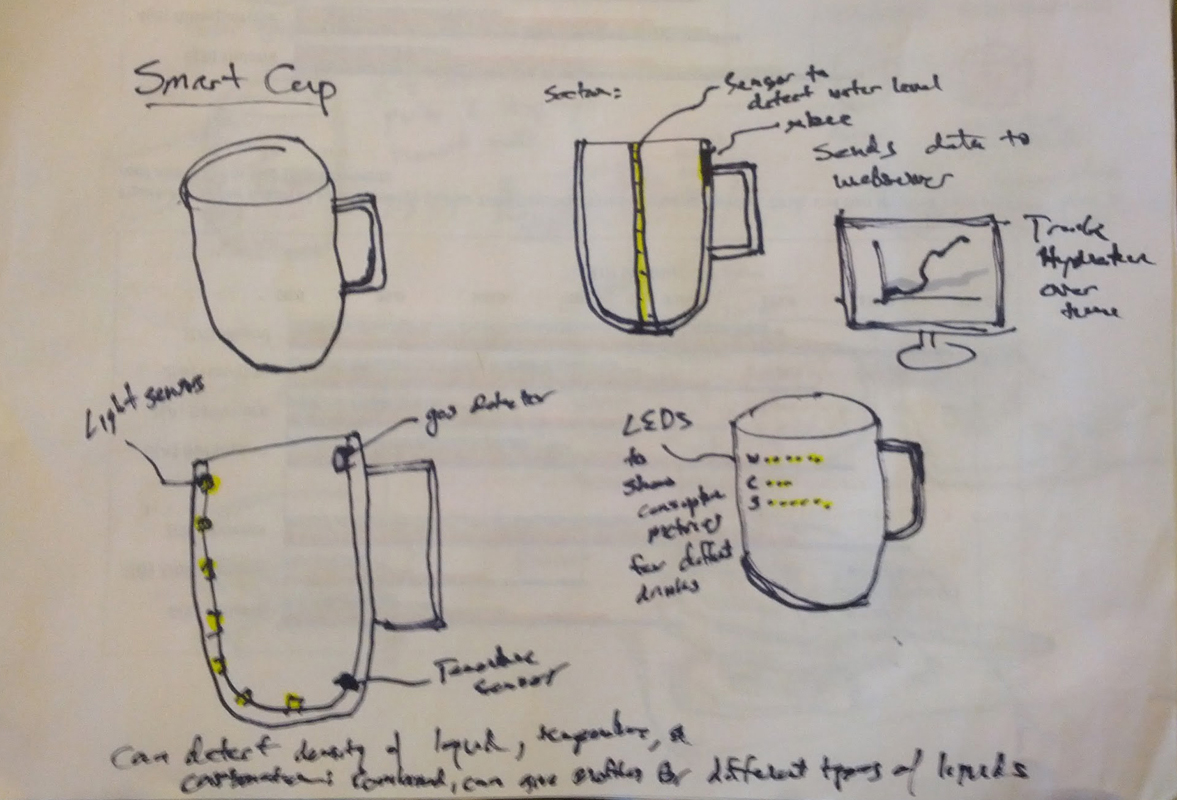 Smart Cup
Section:
Sensor to
detect water level
Sends data to
webserver
Track
Hydration
over
time
Light sensors
gas detector
LEDS
to
show
consumption
metrics
for different
drinks
W
C
S
Temperature
sensor
can detect density of liquid, temperature, &
carbonation combined, can give profiles for different types of liquids